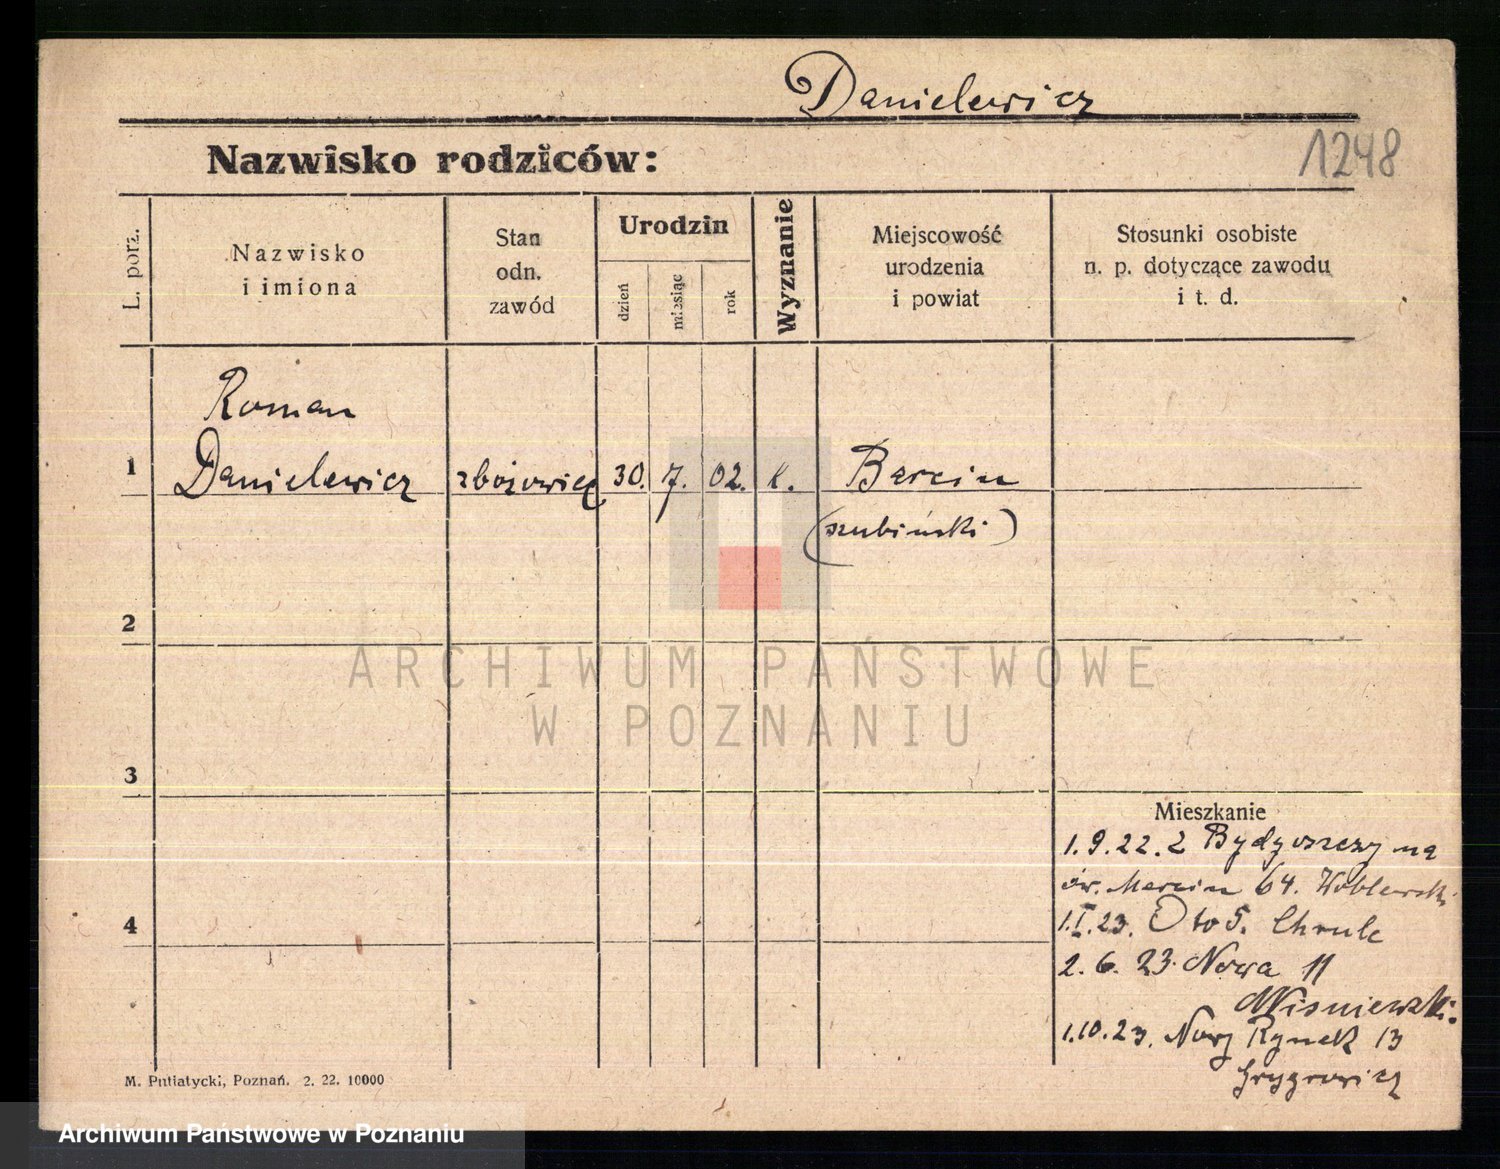 Danielewicz
Nazwisko rodziców:
1248
L. porz.
Nazwisko
i imiona
Stan
odn.
zawód
Urodzin
dzień
miesiąc
rok
Wyznanie
Miejscowość
urodzenia
i powiat
Stosunki osobiste
n. p. dotyczące zawodu
i t. d.
Roman
1 Danielewicz zbożowiec 30. 7. 02. k. Barcin
(szubiński)
2
ARCHIWUM PAŃSTWOWE
W POZNANIU
3
Mieszkanie
1.9.22. z Bydgoszczy na
św. Marcin 64.
4
1.I.23. 5.
2. 6. 23. Nowa 11
Wisniewski
1.10.23. Nowy Rynek 13
M. Putiatycki, Poznań. 2. 22. 10000
Archiwum Państwowe w Poznaniu